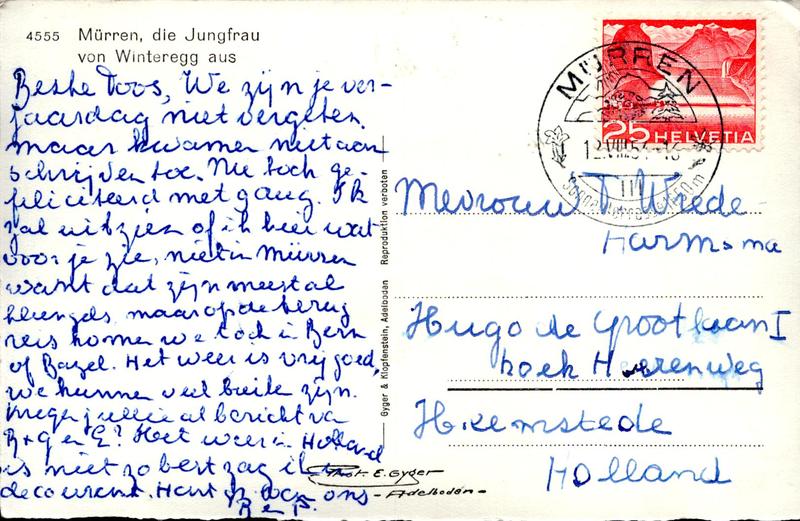 4555 Mürren, die Jungfrau
von Winteregg aus
Beste Toos, We zijn je ver-
jaardag niet vergeten
maar kwamen niet aan
schrijven toe. Nu toch ge-
feliciteerd met gang. Ik
zal uitzien of ik hier wat
voor je zie, niet in Mürren
want dat zijn meestal
maar op de terug
reis komen we toch in Bern
of Bazel. Het weer is vrij goed,
we kunnen veel buiten zijn.
jullie al bericht van
B + G en E? Het weer in Holland
is niet zo best zag ik in
de courant. Hart. gr. van ons
B en P.
Gyger & Klopfenstein, Adelboden Reproduktion verboten
Phot. E. Gyger
- Adelboden -
HELVETIA
25
MÜRREN
12.VIII.54
1650 m
Mevrouw T. Wrede-
Harmsma
Hugo de Grootlaan 1
hoek Herenweg
Heemstede
Holland